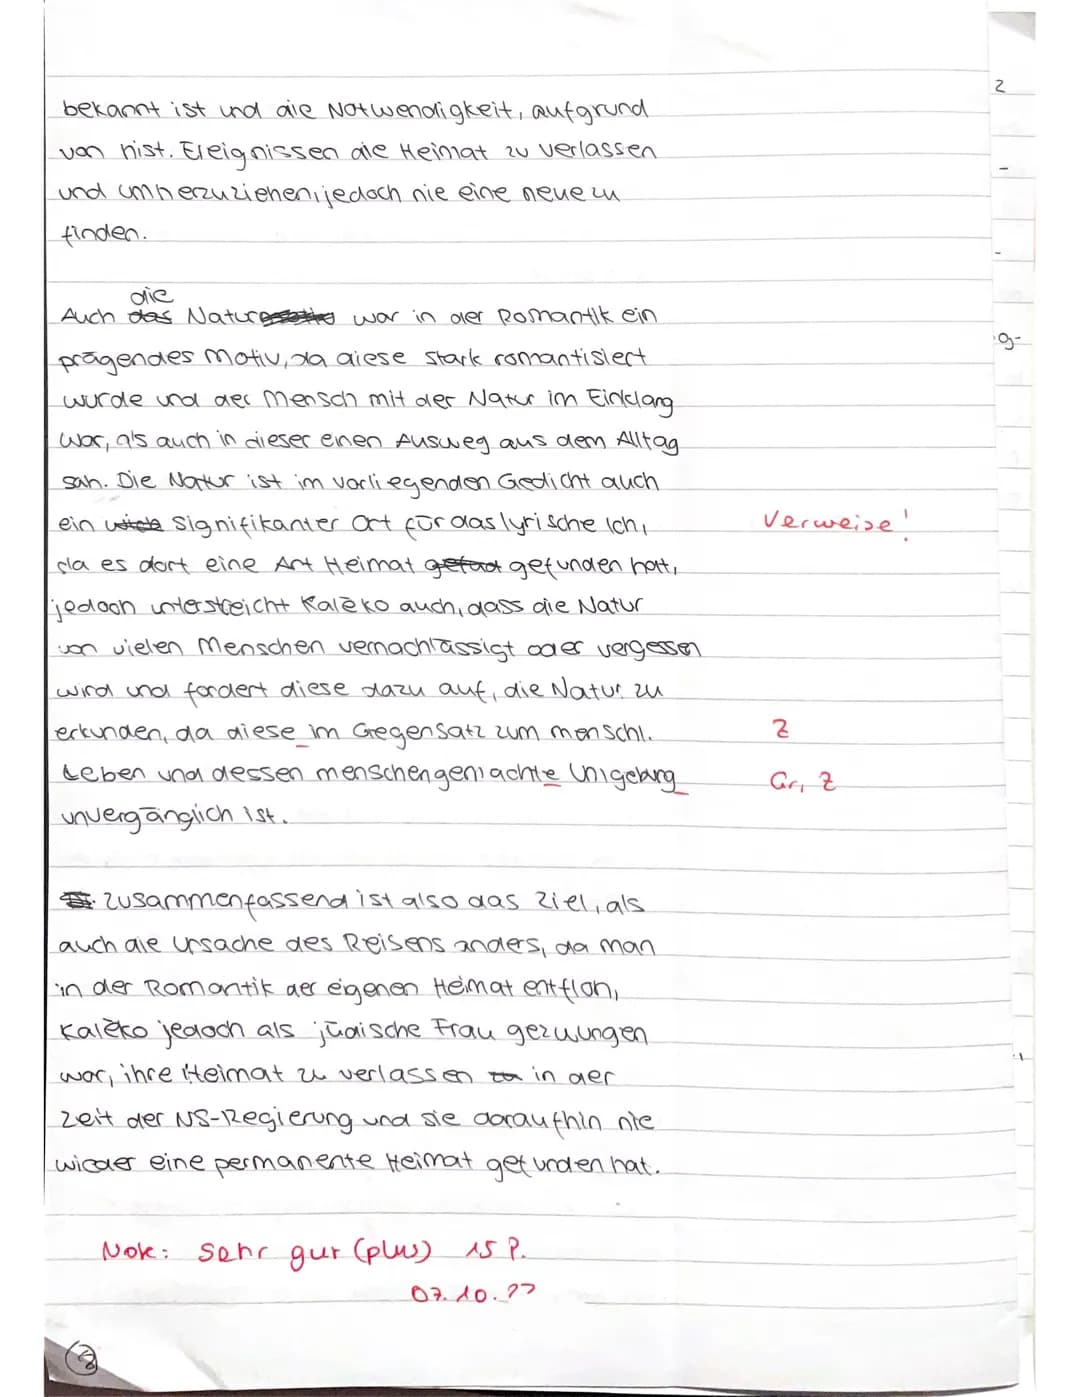 bekannt ist und die Notwendigkeit, aufgrund
von hist. Ereignissen die Heimat zu verlassen
und umherzuziehen, jedoch nie eine neue zu
finden.
die
Auch das Natur war in der Romantik ein
prägendes Motiv, da diese stark romantisiert
wurde und der Mensch mit der Natur im Einklang
war, als auch in dieser einen Ausweg aus dem Alltag
sah. Die Natur ist im vorliegenden Gedicht auch
ein signifikanter Ort für das lyrische Ich,
Verweise!
da es dort eine Art Heimat gefunden hat,
jedoch unterstreicht Kalèko auch, dass die Natur
von vielen Menschen vernachlässigt oder vergessen
wird und fordert diese dazu auf, die Natur zu
erkunden, da diese im Gegensatz zum menschl.
Z
Leben und dessen menschengemachte Umgebung
Gr, Z
unvergänglich ist.
Zusammenfassend ist also das Ziel, als
auch die Ursache des Reisens anders, da man
in der Romantik der eigenen Heimat entfloh,
Kalèko jedoch als jüdische Frau gezwungen
war, ihre Heimat zu verlassen in der
Zeit der NS-Regierung und sie daraufhin nie
wieder eine permanente Heimat gefunden hat.
Note: sehr gut (plus) 15 P.
07.10.22
8
2
g-